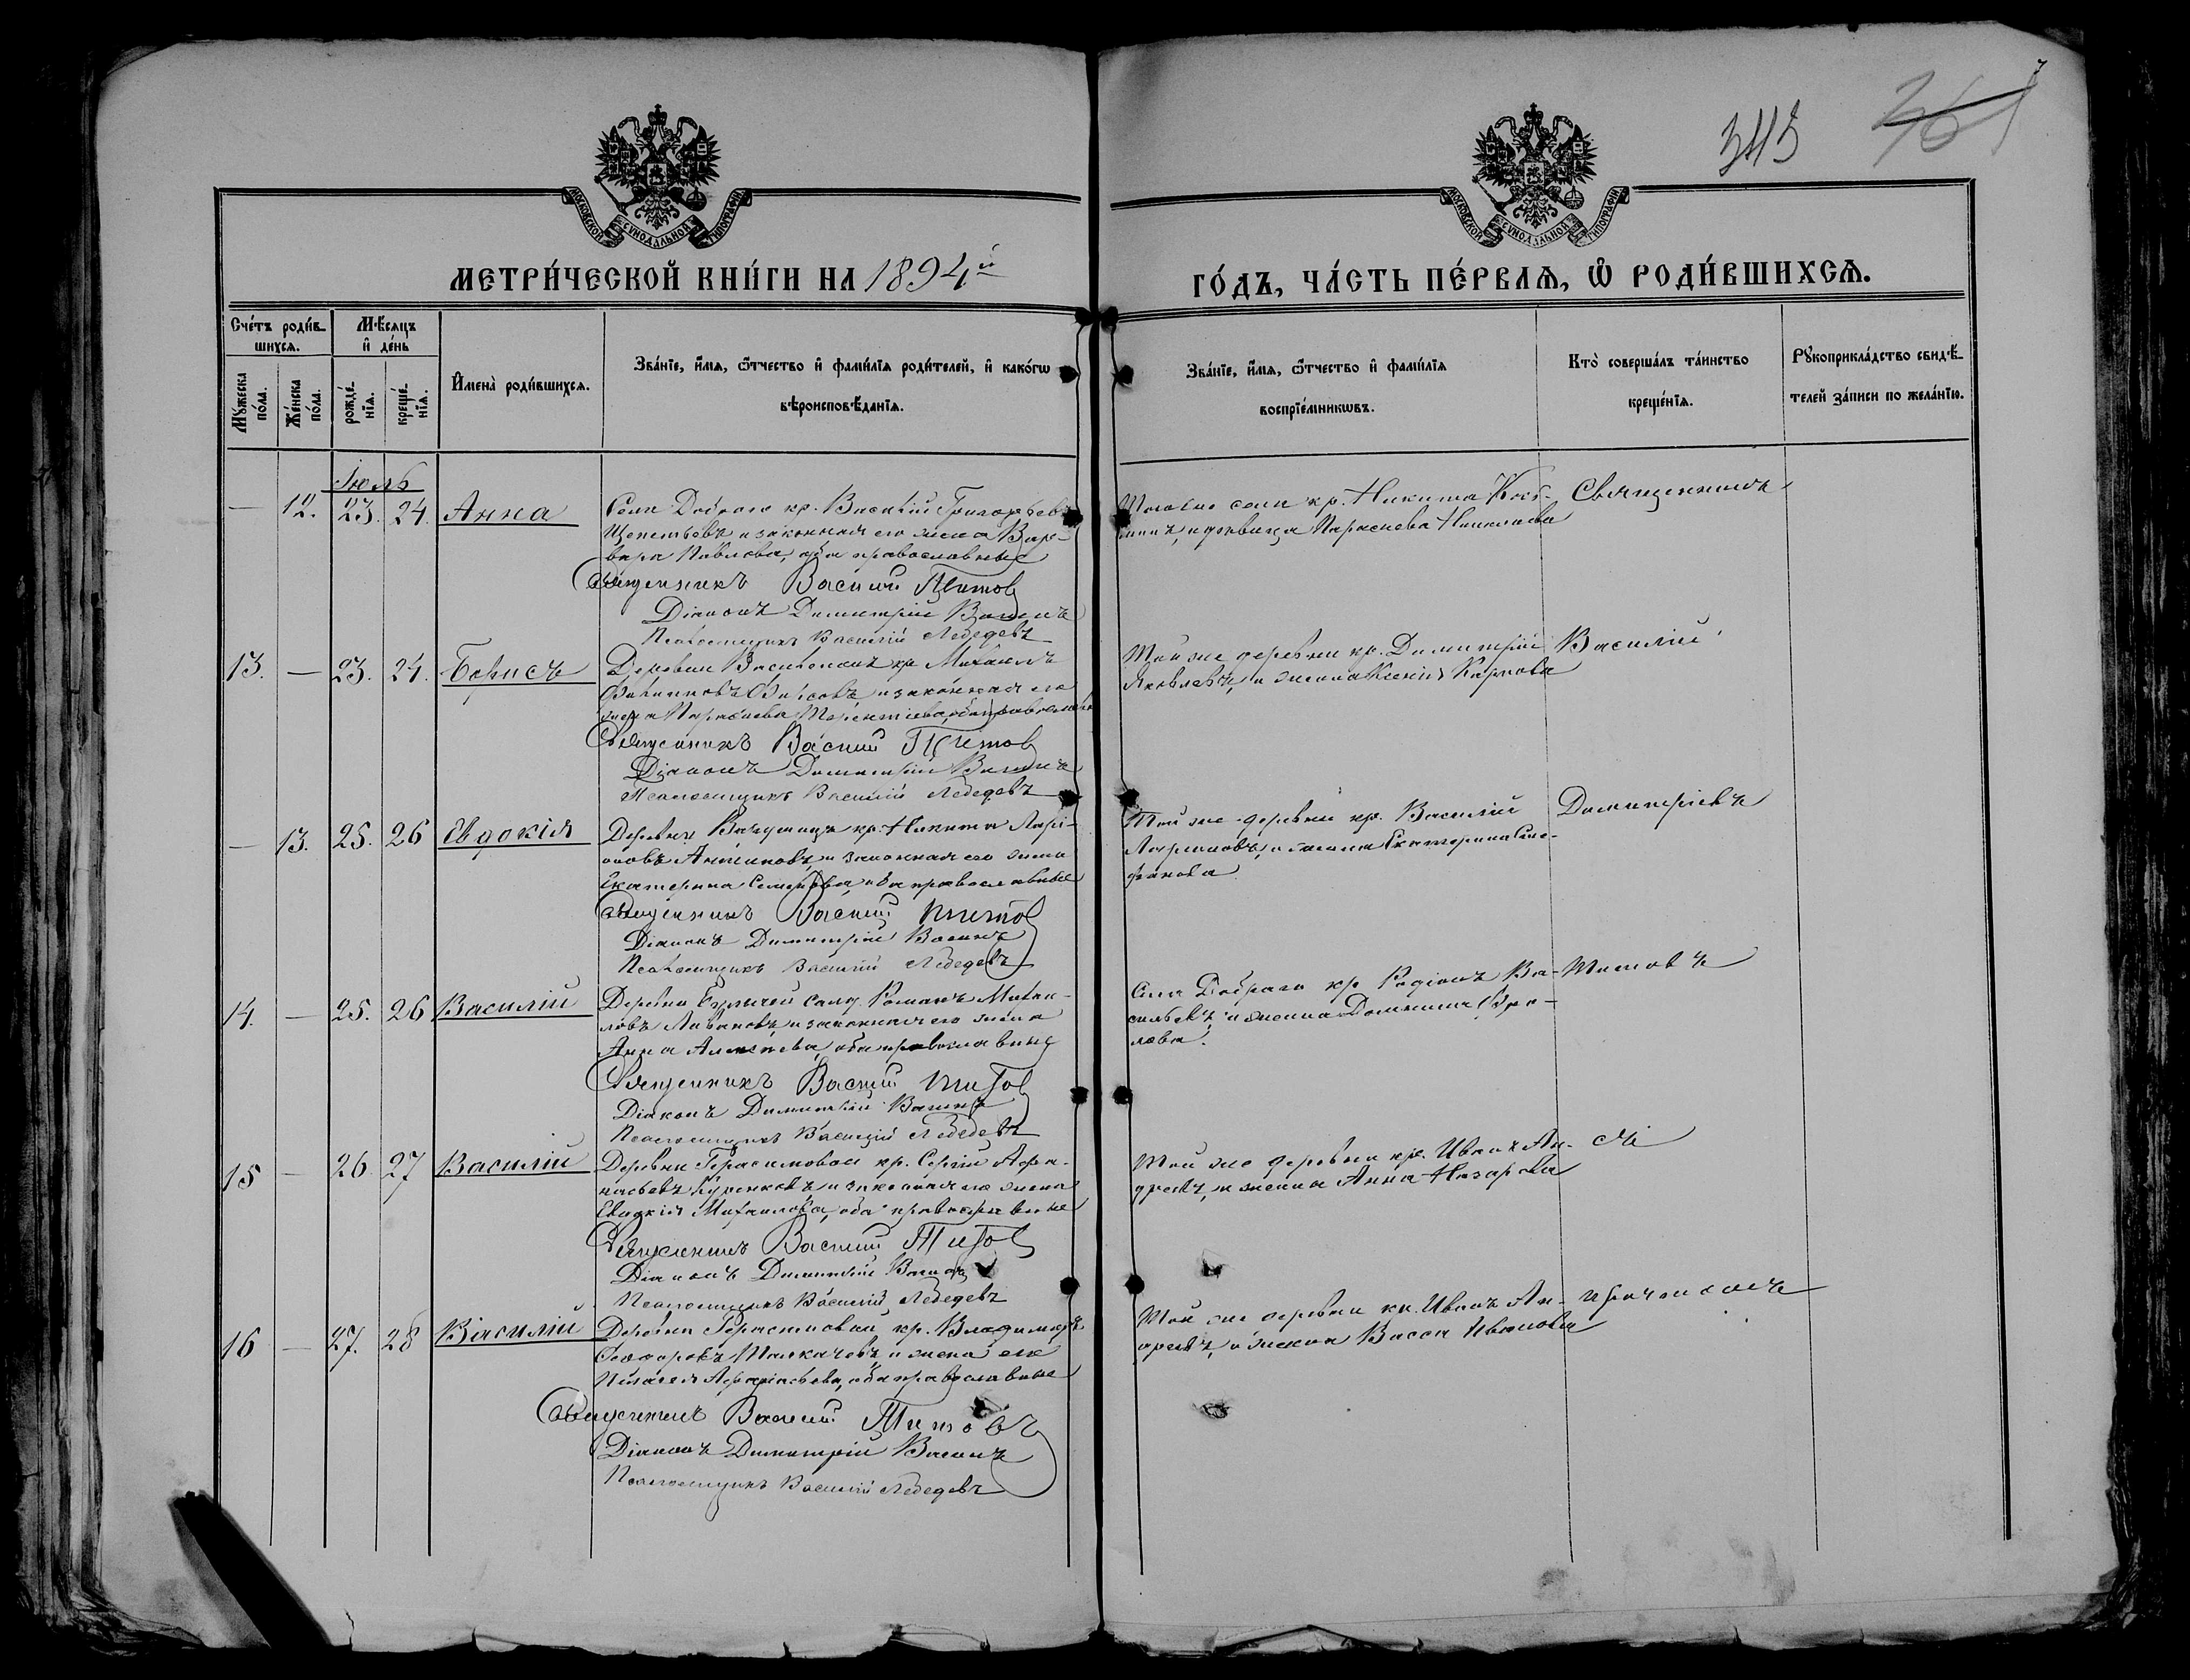 345
361
МОСКОВСКОЙ СѴНОДАЛЬНОЙ ТИПОГРАФІИ
МОСКОВСКОЙ СѴНОДАЛЬНОЙ ТИПОГРАФІИ
МЕТРИ́ЧЕСКОЙ КНИ́ГИ НА 1894й
ГО́ДЪ, ЧА́СТЬ ПЕ́РВАѦ, Ѽ РОДИ́ВШИХСѦ.
Сче́тъ роди́в-
шихсѧ.
Мѣ́сѧцъ
и҆ де́нь
Мꙋ́жеска по́ла.
Же́нска по́ла.
рожде́-
нїѧ.
креще́-
нїѧ.
И҆мена̀ роди́вшихсѧ.
Зва́нїе, и҆́мѧ, ѻ҆́тчество и҆ фами́лїѧ роди́телей, и҆ како́гѡ
вѣроисповѣ́данїѧ.
Зва́нїе, и҆́мѧ, ѻ҆́тчество и҆ фами́лїѧ
воспрїе́мникѡвъ.
Кто̀ соверша́лъ та́инство
креще́нїѧ.
Рꙋкоприкла́дство свидѣ́-
телей за́писи по жела́нїю.
Іюль
— 12. 23. 24. Анна
Села Добраго кр. Василій Григорьевъ
и законная его жена Вар-
вара Павлова, оба православные
Священникъ Василий Титов
Діаконъ Димитрій Васинъ
Псаломщикъ Василій Лебедевъ
Тогоже села кр. Никита
и девица Параскева Николаева
Священникъ
13. — 23. 24. Борисъ
Деревни кр. Михаилъ
Филипповъ и законная его
жена Параскева Терентіева, оба православные
Священникъ Василий Титов
Діаконъ Димитрій Васинъ
Псаломщикъ Василій Лебедевъ
Той же деревни кр. Димитрій
Яковлевъ, и жена Ксенія Карпова
Василій
— 13. 25. 26 Евдокія
Деревни кр. Никита Ларі-
оновъ и законная его жена
Екатерина Семенова, оба православные
Священникъ Василий Титов
Діаконъ Димитрій Васинъ
Псаломщикъ Василій Лебедевъ
Той же деревни кр. Василій
Ларіоновъ, и жена Екатерина Сте-
фанова
Димитріевъ
14. — 25. 26 Василій
Деревни солд. Романъ Михаи-
ловъ и законная его жена
Анна Алексеева, оба православные
Священникъ Василий Титов
Діаконъ Димитрій Васинъ
Псаломщикъ Василій Лебедевъ
Села Добраго кр. Родіонъ Ва-
сильевъ, и жена Домникія Фро-
лова.
Титовъ
15 — 26. 27 Василій
Деревни Герасимовки кр. Сергій Афа-
насьевъ и законная его жена
Евдокія Михаилова, оба православные
Священникъ Василий Титов
Діаконъ Димитрій Васинъ
Псаломщикъ Василій Лебедевъ
Той же деревни кр. Иванъ Ан-
дреевъ, и жена Анна Назарова
съ
16 — 27. 28 Василій
Деревни Герасимовки кр. Владимиръ
Феодоровъ Толкачевъ, и жена его
Пелагея Афанасьева, оба православные
Священникъ Василий Титовъ
Діаконъ Димитрій Васинъ
Псаломщикъ Василій Лебедевъ
Той же деревни кр. Иванъ Ан-
дреевъ, и жена Васса Иванова
причтомъ